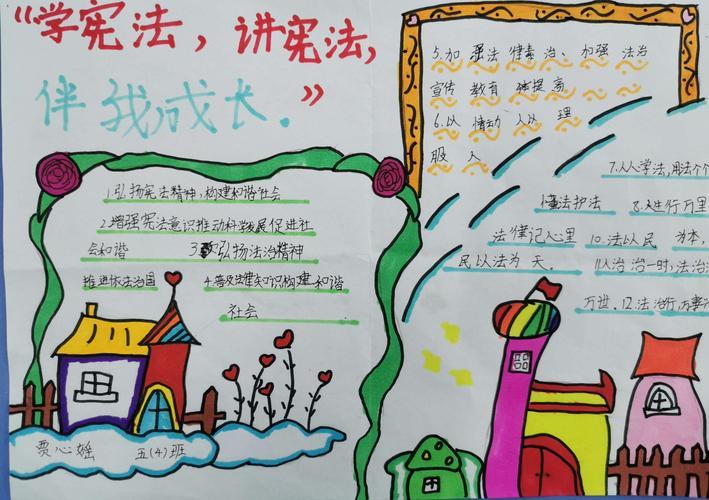 “学宪法，讲宪法，
伴我成长．”
1.弘扬宪法精神，构建和谐社会
2.增强宪法意识推动科学发展促进社
会和谐 3.弘扬法治精神
推进依法治国 4.普及法律知识构建和谐
社会
贾心 五(4)班
5.加强法律素治、加强法治
宣传教育 提高
6.以情动人以理
服人
7.人人学法，用法个个
懂法护法 8.人生行万里
法律记心里 10.法以民为本，
民以法为天． 11.人治治一时，法治治
万世．12.法治行，万事